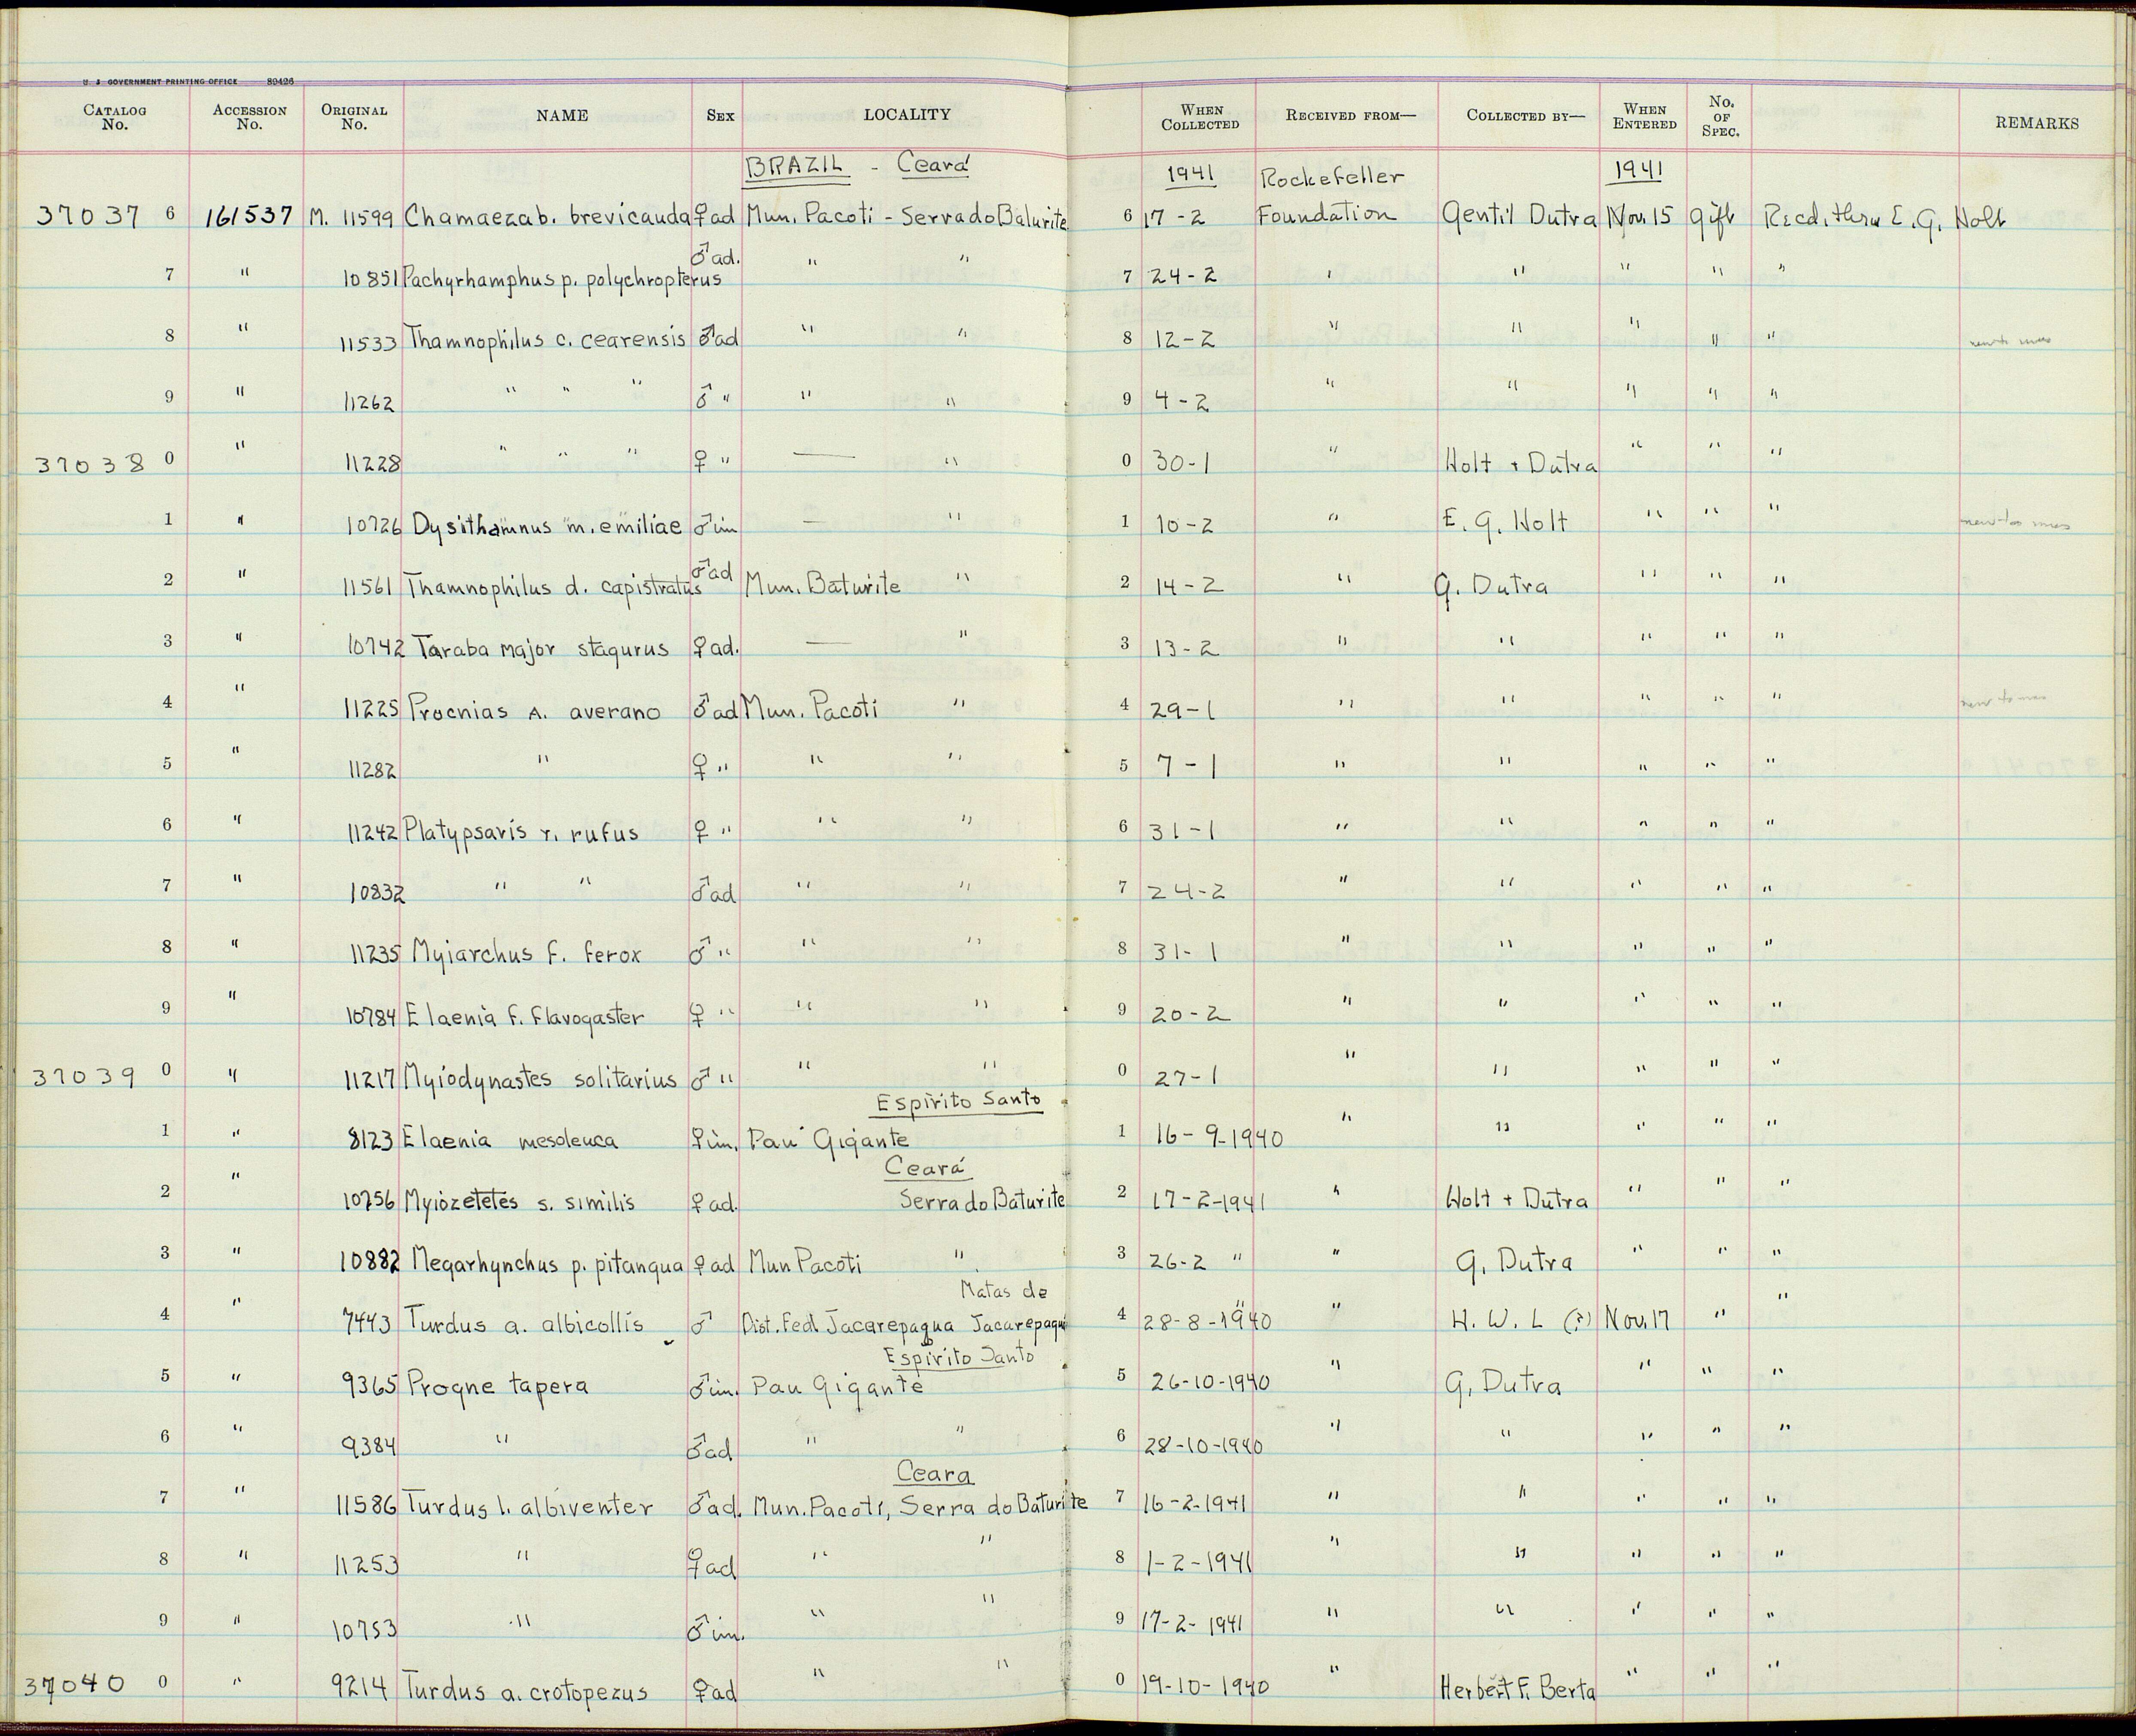 U. S. GOVERNMENT PRINTING OFFICE 89426
CATALOG No. ACCESSION No. ORIGINAL No. NAME SEX LOCALITY WHEN COLLECTED RECEIVED FROM— COLLECTED BY— WHEN ENTERED No. OF SPEC. REMARKS
BRAZIL - Ceará 1941 Rockefeller 1941
37037 6 161537 M. 11599 Chamaeza b. brevicauda ♀ad Mun. Pacoti - Serra do Baturite 6 17-2 Foundation Gentil Dutra Nov. 15 gift Recd. thru E. G. Holt
7 " 10851 Pachyrhamphus p. polychropterus ♂ad. " " 7 24-2 " " " " "
8 " 11533 Thamnophilus c. cearensis ♂ad " " 8 12-2 " " " " "
9 " 11262 " " " ♂ " " " 9 4-2 " " " " "
37038 0 " 11228 " " " ♀ " — " 0 30-1 " Holt + Dutra " " "
1 " 10726 Dysithamnus m. emiliae ♂im — " 1 10-2 " E. G. Holt " " "
2 " 11561 Thamnophilus d. capistratus ♂ad Mun. Baturite " 2 14-2 " G. Dutra " " "
3 " 10742 Taraba major stagurus ♀ad. — " 3 13-2 " " " " "
4 " 11225 Procnias A. averano ♂ad Mun. Pacoti " 4 29-1 " " " " "
5 " 11282 " ♀ " " " 5 7-1 " " " " "
6 " 11242 Platypsaris r. rufus ♀ " " " 6 31-1 " " " " "
7 " 10832 " " ♂ad " " 7 24-2 " " " " "
8 " 11235 Myiarchus f. ferox ♂ " " " 8 31-1 " " " " "
9 " 10784 Elaenia f. flavogaster ♀ " " " 9 20-2 " " " " "
37039 0 " 11217 Myiodynastes solitarius ♂ " " " 0 27-1 " " " " "
Espirito Santo
1 " 8123 Elaenia mesoleuca ♀im. Pau Gigante 1 16-9-1940 " " " " "
Ceará
2 " 10756 Myiozetetes s. similis ♀ad. Serra do Baturite 2 17-2-1941 " Holt + Dutra " " "
3 " 10882 Megarhynchus p. pitangua ♀ad Mun Pacoti " 3 26-2 " " G. Dutra " " "
Matas de
4 " 7443 Turdus a. albicollis ♂ Dist. Fedl Jacarepagua Jacarepagua 4 28-8-1940 " H. W. L (?) Nov. 17 " "
Espirito Santo
5 " 9365 Progne tapera ♂im. Pau Gigante 5 26-10-1940 " G. Dutra " " "
6 " 9384 " ♂ad " " 6 28-10-1940 " " " " "
Ceara
7 " 11586 Turdus l. albiventer ♂ad. Mun. Pacoti, Serra do Baturite 7 16-2-1941 " " " " "
8 " 11253 " ♀ad " " 8 1-2-1941 " " " " "
9 " 10753 " ♂im. " " 9 17-2-1941 " " " " "
37040 0 " 9214 Turdus a. crotopezus ♀ad " " 0 19-10-1940 " Herbert F. Berta " " "